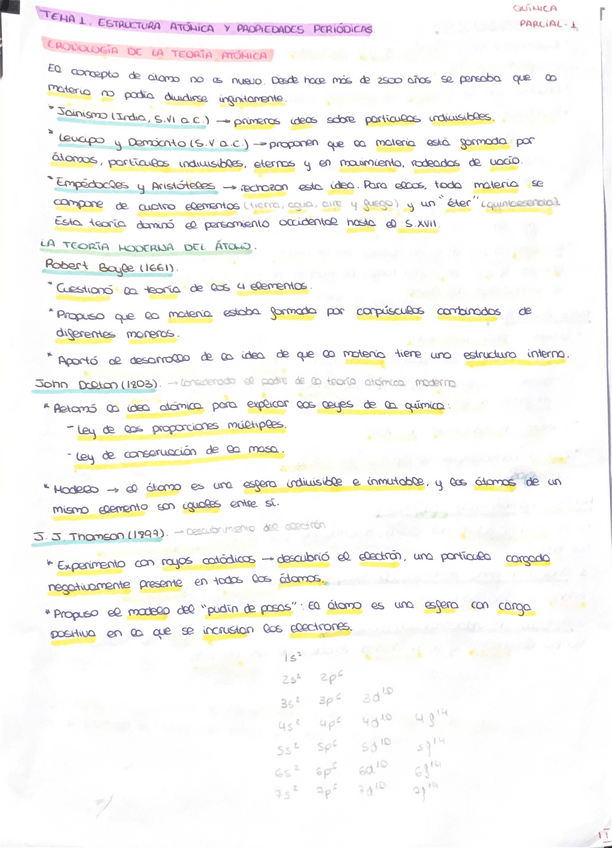 QUÍMICA
PARCIAL-1
TEMA 1. ESTRUCTURA ATÓMICA Y PROPIEDADES PERIÓDICAS.
CRONOLOGÍA DE LA TEORÍA ATÓMICA
El concepto de átomo no es nuevo. Desde hace más de 2500 años se pensaba que la
materia no podía dividirse infinitamente.
* Jainismo (India, S.VI a.C.) → primeras ideas sobre partículas indivisibles.
* Leucipo y Demócrito (S.V a.C.) → proponen que la materia está formada por
átomos, partículas indivisibles, eternas y en movimiento, rodeadas de vacío.
* Empédocles y Aristóteles → rechazan esta idea. Para ellos, toda materia se
compone de cuatro elementos (tierra, agua, aire y fuego) y un "éter" (quintaesencia).
Esta teoría dominó el pensamiento occidental hasta el S.XVII.
LA TEORÍA MODERNA DEL ÁTOMO.
Robert Boyle (1661).
* Cuestionó la teoría de los 4 elementos.
* Propuso que la materia estaba formada por corpúsculos combinados de
diferentes maneras.
* Aportó al desarrollo de la idea de que la materia tiene una estructura interna.
John Dalton (1803). → Considerado el padre de la teoría atómica moderna
* Retomó la idea atómica para explicar las leyes de la química:
- Ley de las proporciones múltiples.
- Ley de conservación de la masa.
* Modelo → el átomo es una esfera indivisible e inmutable, y los átomos de un
mismo elemento son iguales entre sí.
J. J. Thomson (1897). → Descubrimiento del electrón
* Experimento con rayos catódicos → descubrió el electrón, una partícula cargada
negativamente presente en todos los átomos.
* Propuso el modelo del "pudin de pasas": El átomo es una esfera con carga
positiva en la que se incrustan los electrones.
1s²
2s² 2p⁶
3s² 3p⁶ 3d¹⁰
4s² 4p⁶ 4d¹⁰ 4f¹⁴
5s² 5p⁶ 5d¹⁰ 5f¹⁴
6s² 6p⁶ 6d¹⁰ 6f¹⁴
7s² 7p⁶ 7d¹⁰ 7f¹⁴